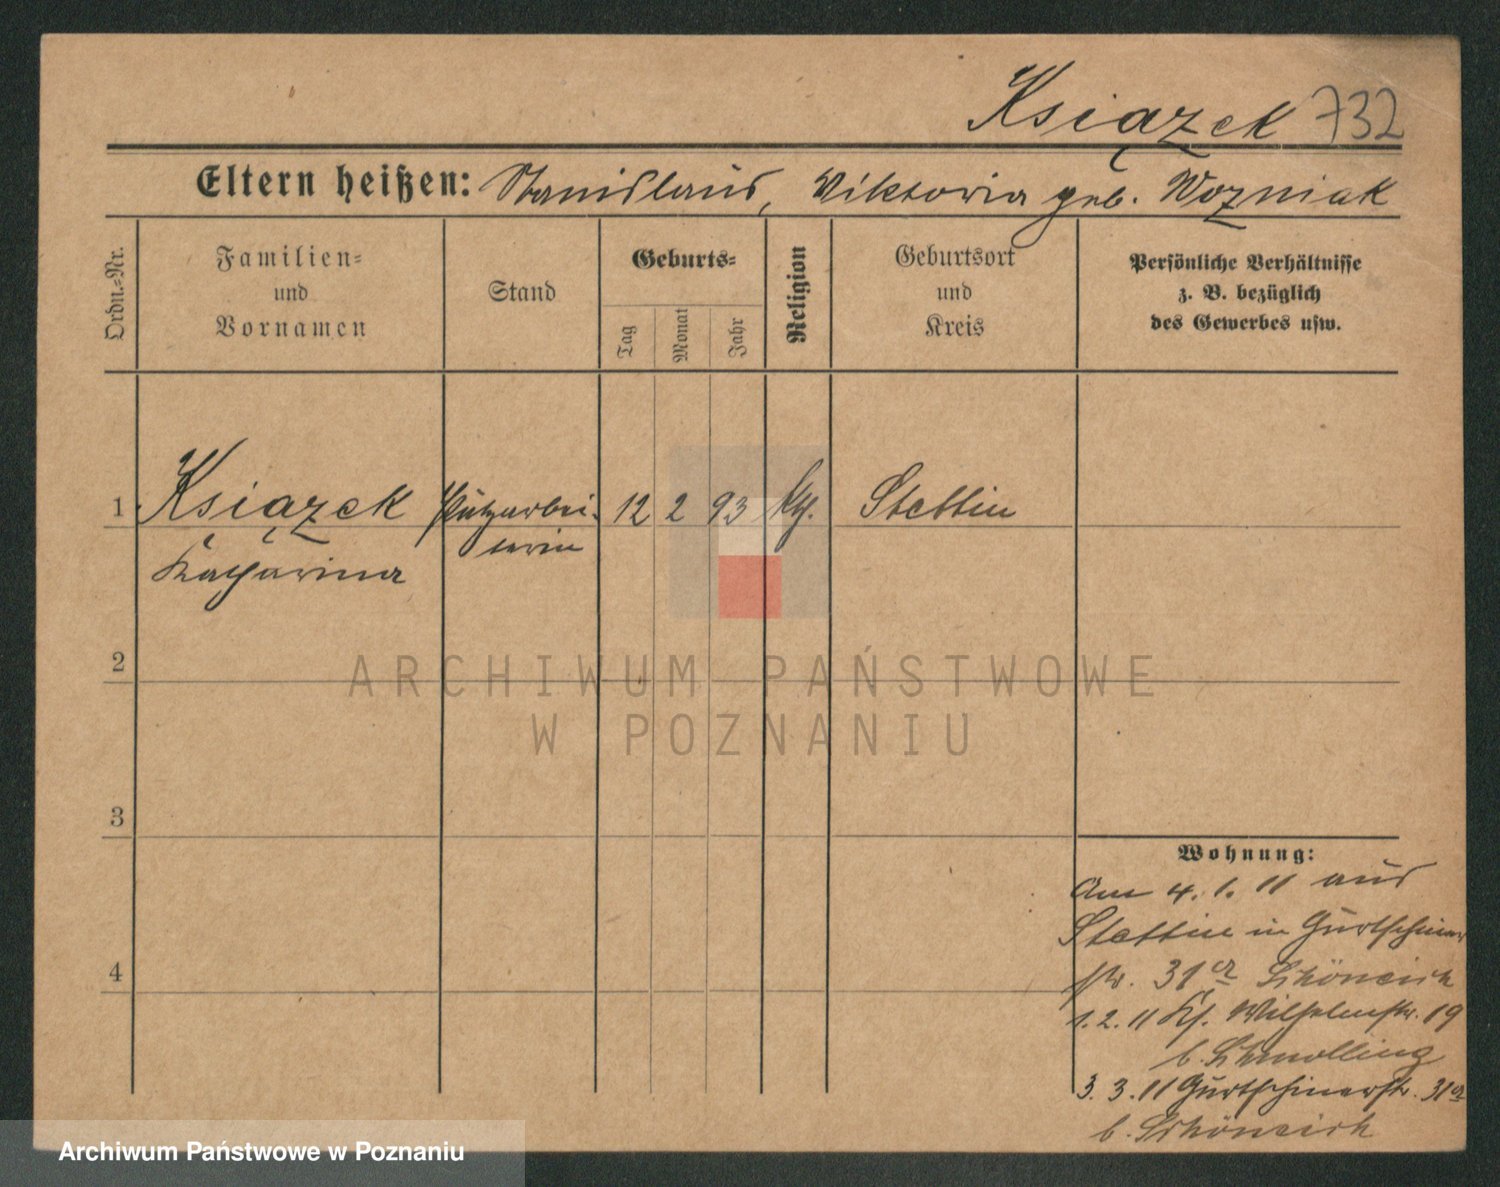 Książek 732
Eltern heißen: Stanislaus, Viktoria geb. Wozniak
Ordn.-Nr.
Familien-
und
Vornamen
Stand
Geburts-
Tag
Monat
Jahr
Religion
Geburtsort
und
Kreis
Persönliche Verhältnisse
z. B. bezüglich
des Gewerbes usw.
1 Książek Putzarbei- 12 2 93 Stettin
terin
Katharina
2
ARCHIWUM PAŃSTWOWE
W POZNANIU
3
Wohnung:
Am 4. 1. 11 aus
Stettin in Gurtschiner
4
str. 31a
1. 2. 11 Wilhelmstr. 19
b.
3. 3. 11 Gurtschinerstr. 31a
b.
Archiwum Państwowe w Poznaniu